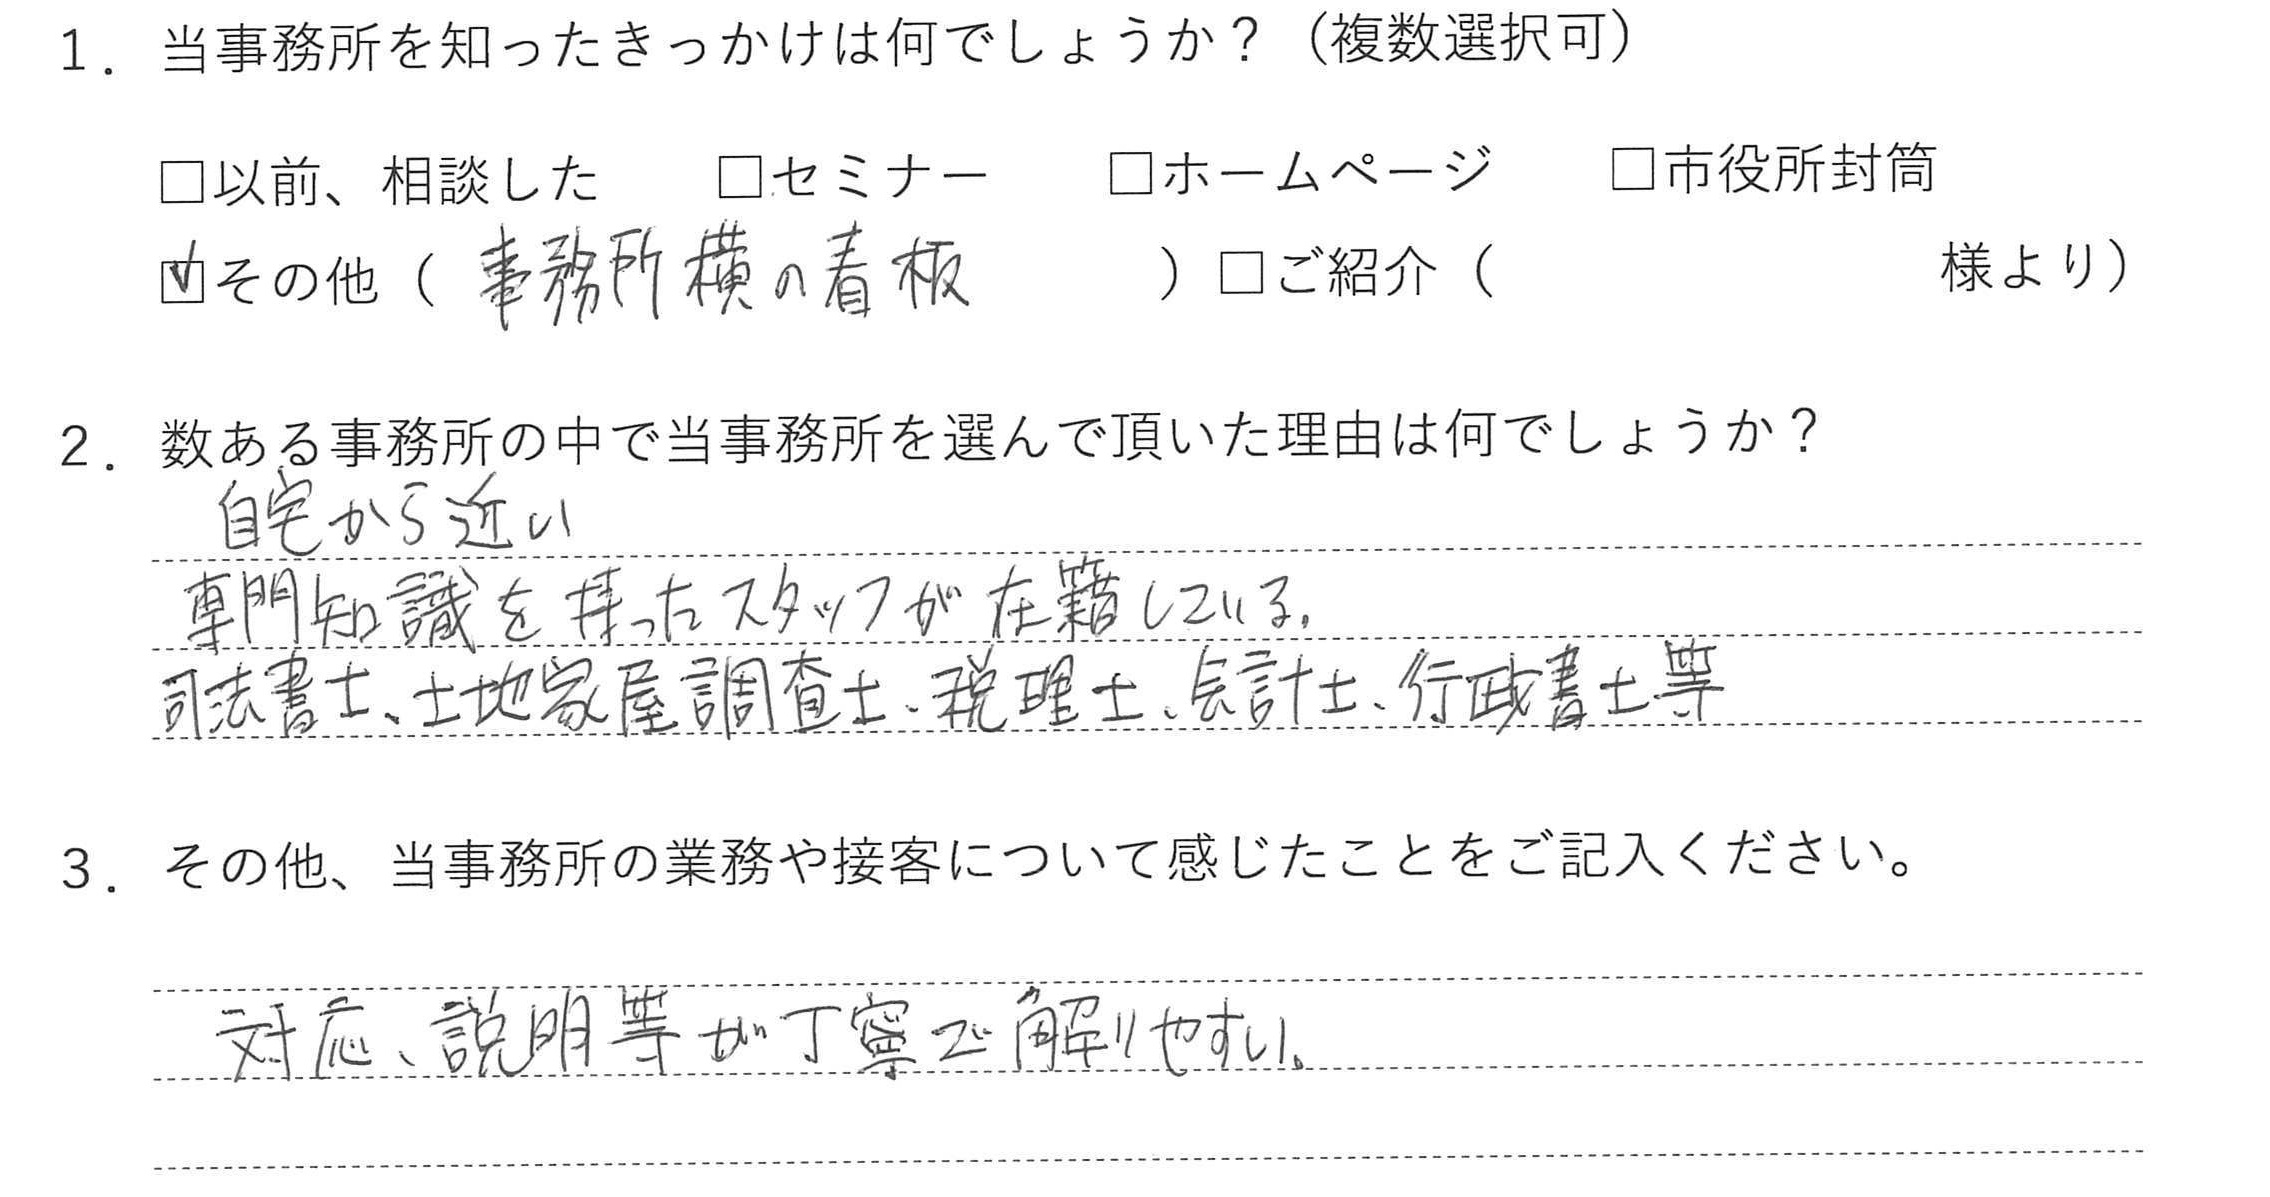 1. 当事務所を知ったきっかけは何でしょうか？（複数選択可）
□以前、相談した □セミナー □ホームページ □市役所封筒
☑その他（ 事務所横の看板 ）□ご紹介（ 様より）
2. 数ある事務所の中で当事務所を選んで頂いた理由は何でしょうか？
自宅から近い
専門知識を持ったスタッフが在籍している。
司法書士、土地家屋調査士、税理士、会計士、行政書士等
3. その他、当事務所の業務や接客について感じたことをご記入ください。
対応、説明等が丁寧で解りやすい。